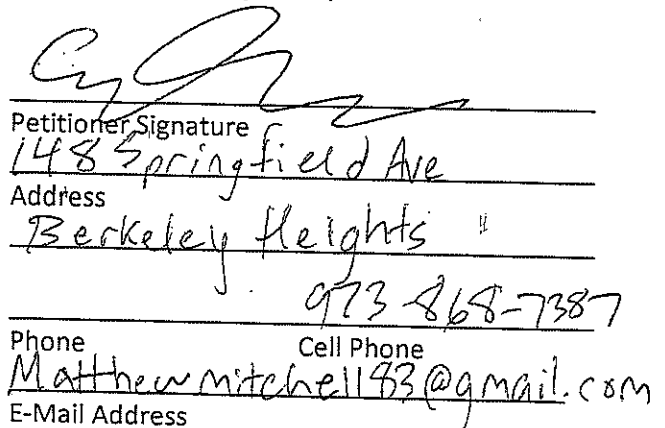 Petitioner Signature
148 Springfield Ave
Address
Berkeley Heights
973-868-7387
Phone Cell Phone
Matthewmitchell83@gmail.com
E-Mail Address